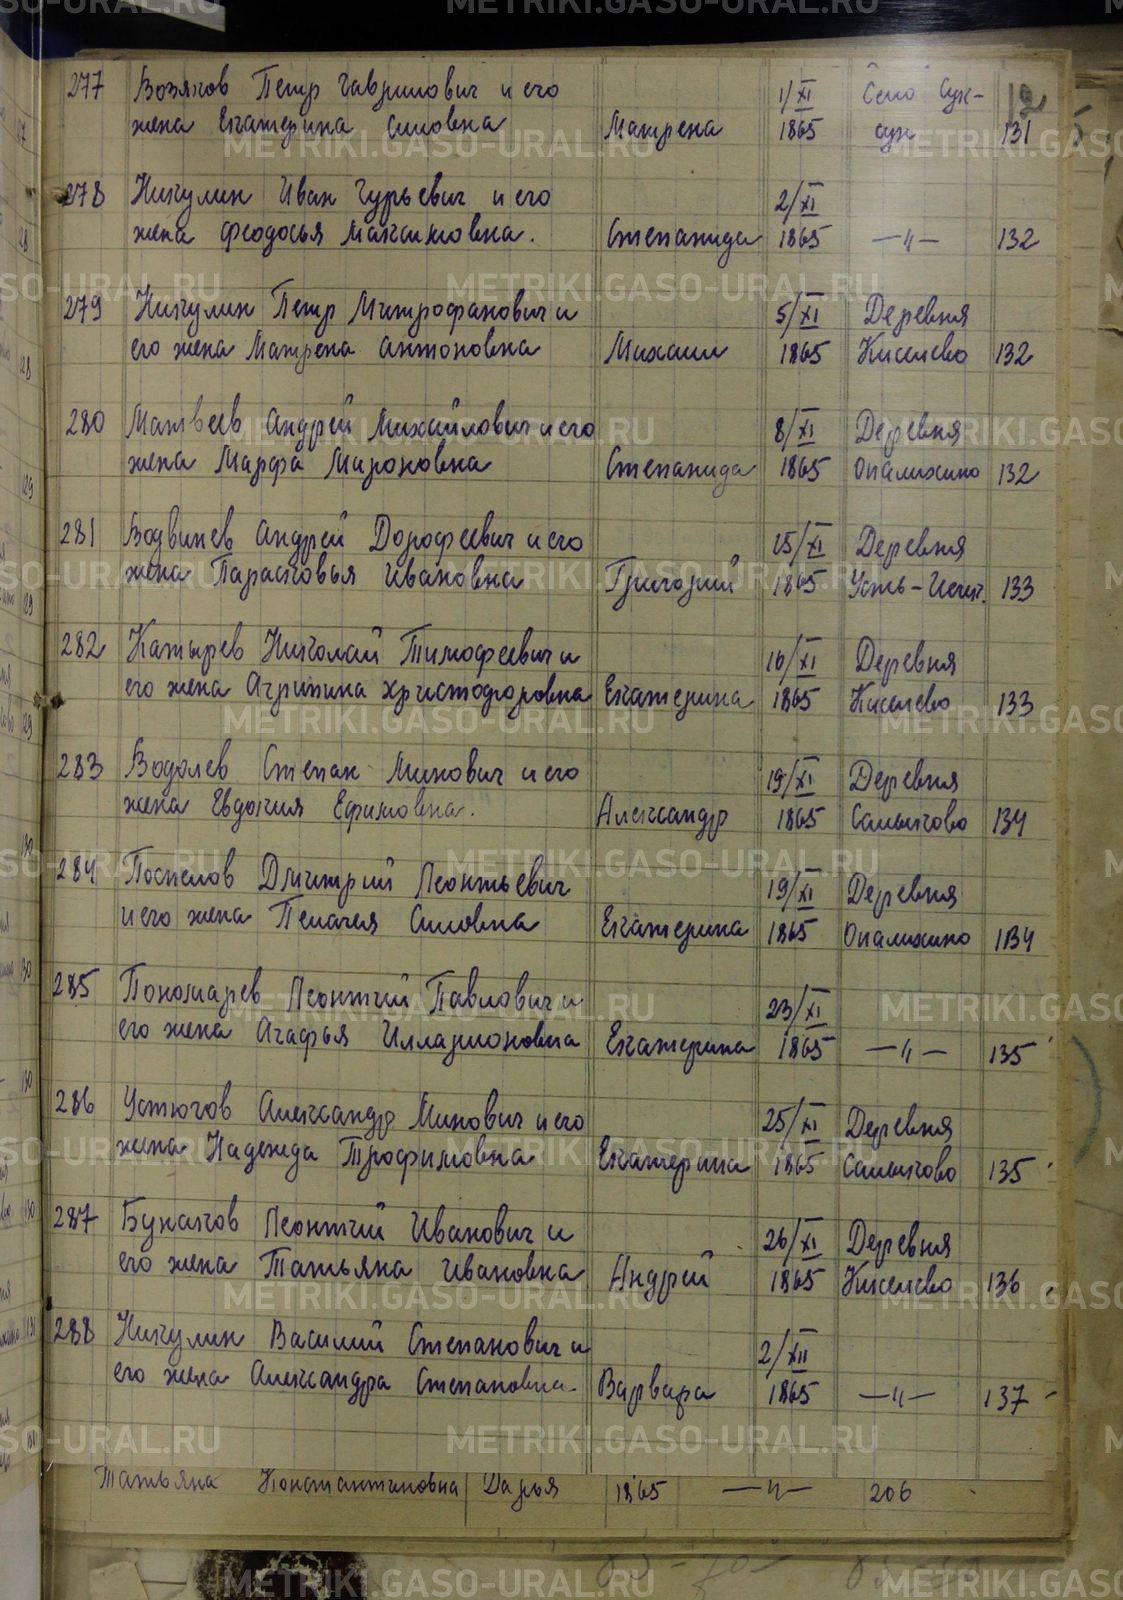 METRIKI.GASO-URAL.RU
277 Возяков Петр Гаврилович и его 1/XI Село Сук- 12
жена Екатерина Силовна Матрена 1865 сук 131
278 Никулин Иван Гурьевич и его 2/XI
жена Феодосья Максимовна. Степанида 1865 —"— 132
279 Никулин Петр Митрофанович и 5/XI Деревня
его жена Матрена Антоновна Михаил 1865 Киселево 132
280 Матвеев Андрей Михайлович и его 8/XI Деревня
жена Марфа Мироновна Степанида 1865 Опалихино 132
281 Водвинев Андрей Дорофеевич и его 15/XI Деревня
жена Парасковья Ивановна Григорий 1865 Усть-Искик. 133
282 Катырев Николай Тимофеевич и 16/XI Деревня
его жена Агрипина Христофоровна Екатерина 1865 Киселево 133
283 Водолев Степан Минович и его 19/XI Деревня
жена Евдокия Ефимовна. Александр 1865 Сашычово 134
284 Поспелов Дмитрий Леонтьевич 19/XI Деревня
и его жена Пелагея Силовна Екатерина 1865 Опалихино 134
285 Пономарев Леонтий Павлович и 23/XI
его жена Агафья Илларионовна Екатерина 1865 —"— 135
286 Устюгов Александр Минович и его 25/XI Деревня
жена Надежда Трофимовна Екатерина 1865 135
287 Буначов Леонтий Иванович и 26/XI Деревня
его жена Татьяна Ивановна Андрей 1865 Киселево 136
288 Никулин Василий Степанович и 2/XII
его жена Александра Степановна. Варвара 1865 —"— 137
Татьяна Константиновна Дарья 1865 —"— 206
METRIKI.GASO-URAL.RU